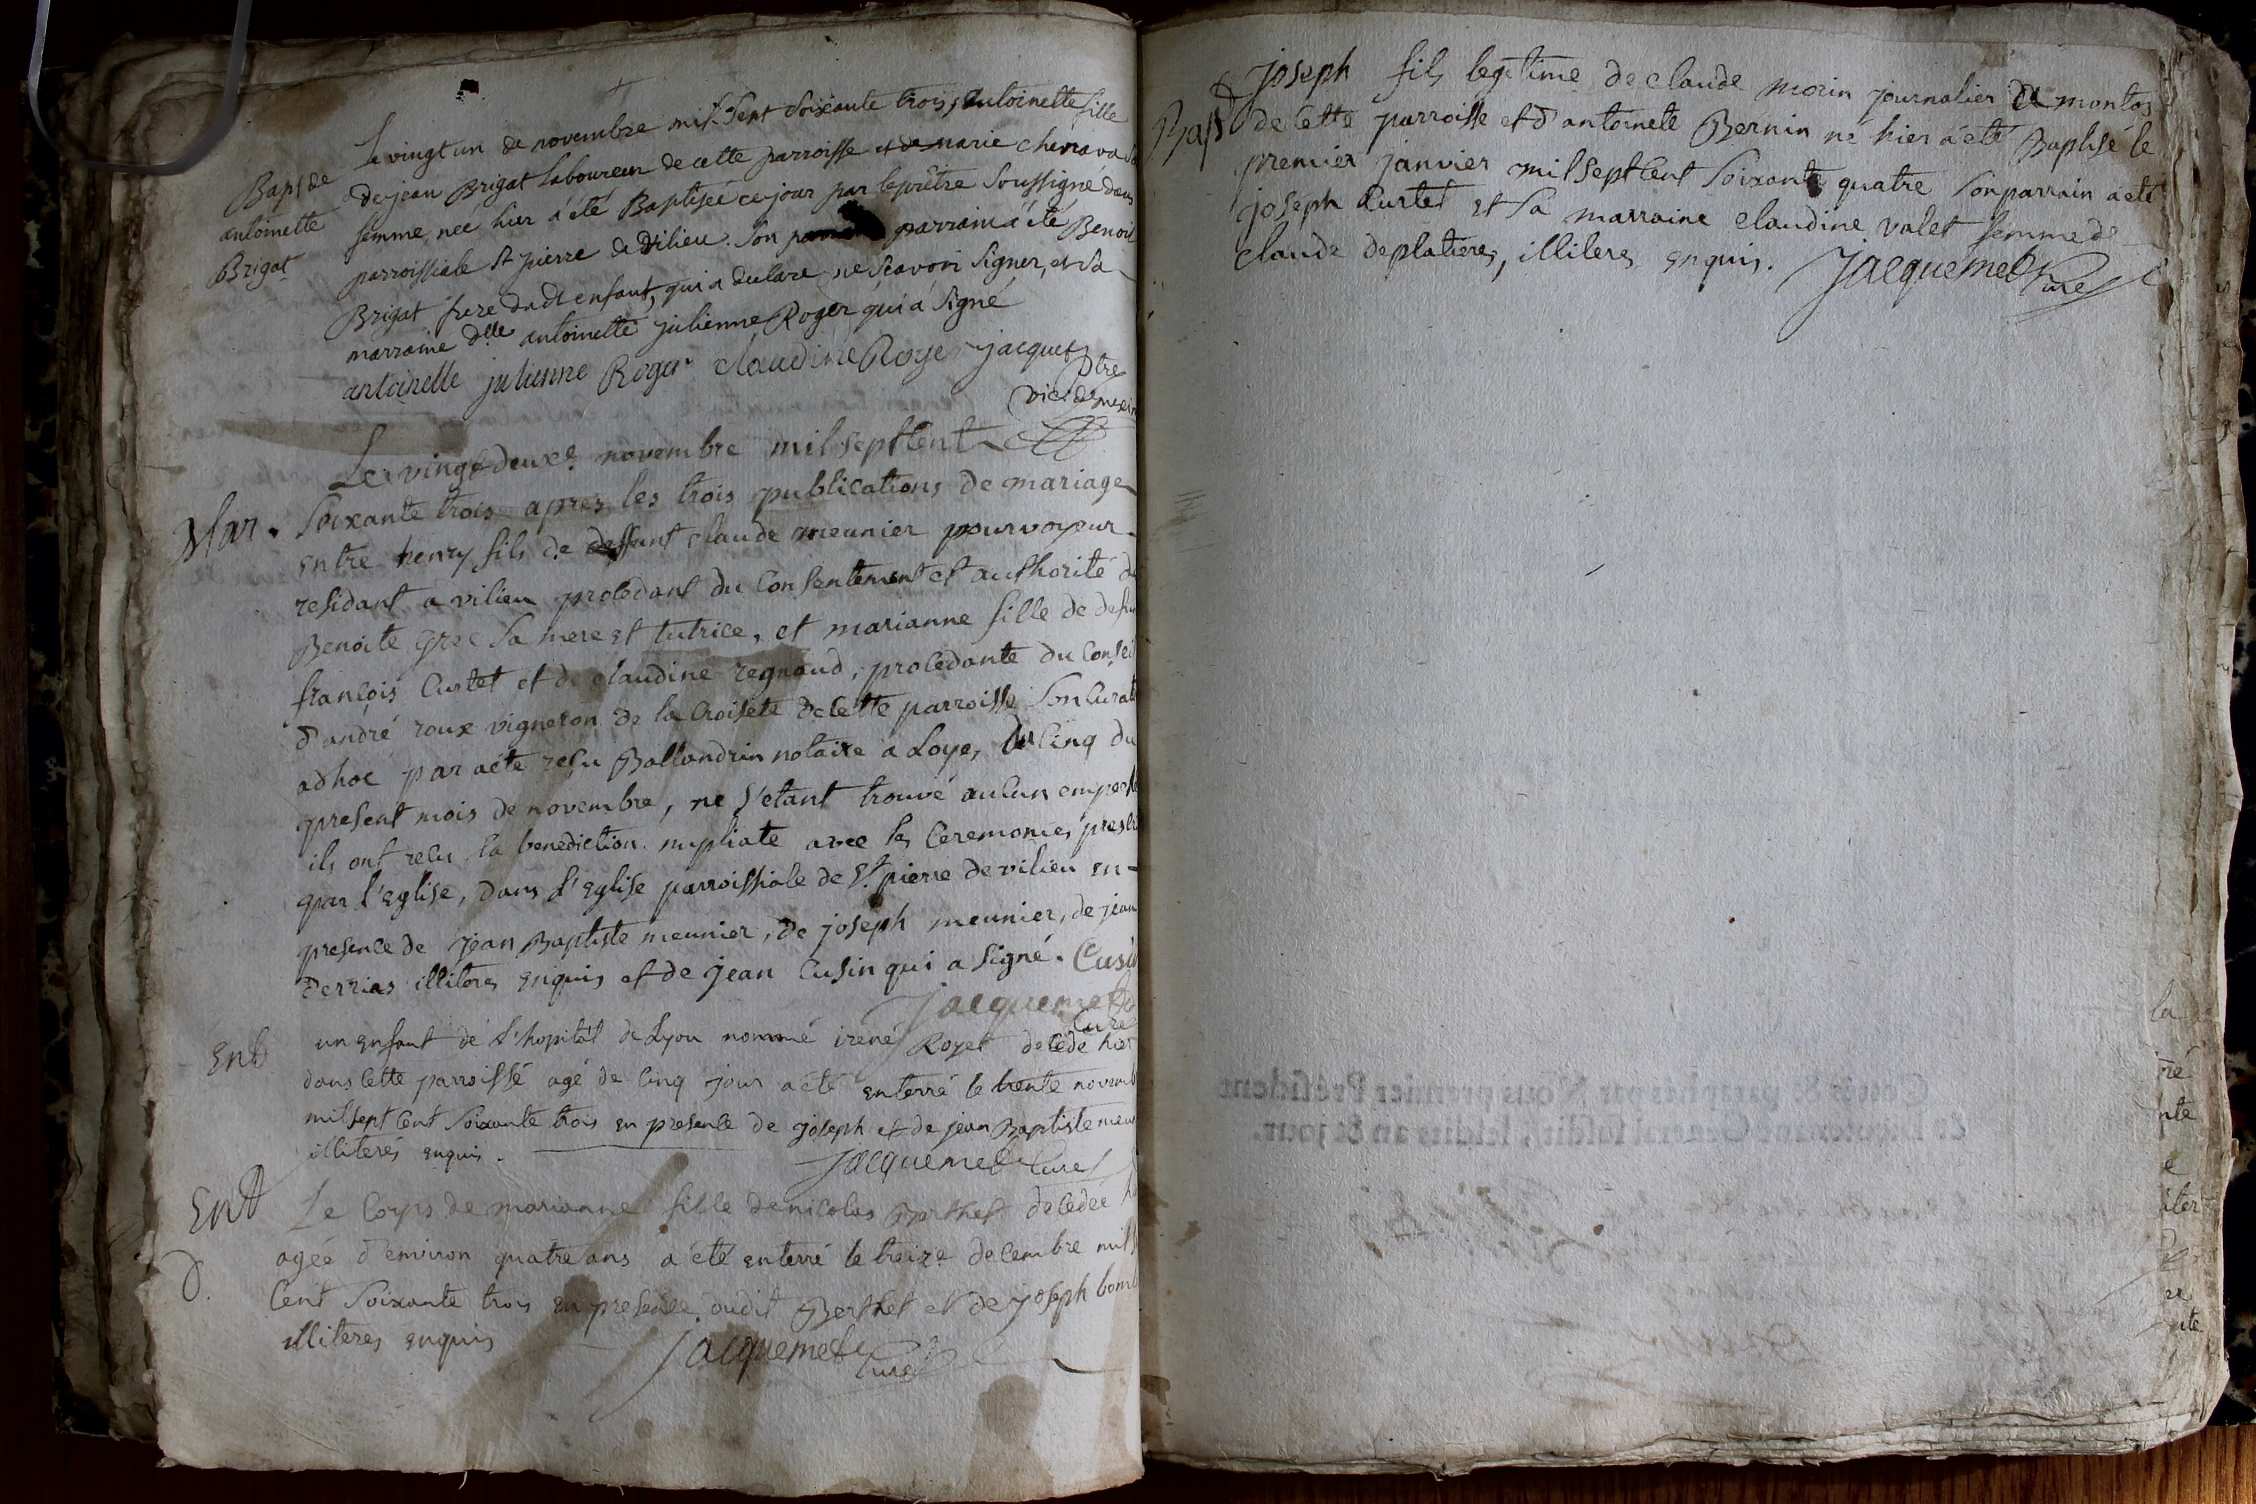 Le vingt un de novembre mil sept soixante trois, antoinette fille
Bapt de
antoinette
Brigat
de jean Brigat Laboureur de cette parroisse et de marie
femme, née hier a été Baptisée ce jour par le prêtre soussigné dans
parroissiale St pierre de vilieu. Son parrain a été Benoit
Brigat frere dudt enfant, qui a declaré ne sçavoir signer, et sa
marraine dlle antoinette julienne Roger qui a signé
antoinette julienne Roger claudine Roger jacquet
ptre
vic. de
Le vingt deuxe novembre mil sept cent
Mar.
soixante trois apres les trois publications de mariage
entre henry fils de deffunt claude meunier pourvoyeur
residant a vilieu procedant du consentement et authorité de
Benoite grec sa mere et tutrice, et marianne fille de
françois Curtet et de claudine regnaud, procedante du
d'andré roux vigneron de la Croisete de cette parroisse son
ad hoc par acte reçu Ballandrin notaire a Loye, du cinq du
present mois de novembre, ne s'etant trouvé aucun
ils ont reçu la benediction nuptiale avec les Ceremonies
par l'eglise, dans l'Eglise parroissiale de St. pierre de vilieu en
presence de jean Baptiste meunier, de joseph meunier, de jean
derrias illiteres enquis et de jean Cusin qui a signé. Cusin
jacquemet
Curé
Ent
un enfant de l'hopital de Lyon nommé irené Royet decedé hier
dans cette parroisse agé de cinq jour a été enterré le trente
mil sept cent soixante trois en presence de joseph et de jean Baptiste
illiterés enquis.
jacquemet Curé
Ent
Le Corps de marianne fille de nicolas Berthet decedée
D.
agée d'environ quatre ans a été enterré le treize decembre mil
Cent soixante trois en presence dudit Berthet et de joseph
illiteres enquis
jacquemet Curé
Bapt
joseph fils legitime de claude morin journalier de montos
de cette parroisse et d'antoinete Bernin né hier a été Baptisé le
premier janvier mil sept cent soixante quatre son parrain a été
joseph Curtet et sa marraine claudine valet femme de
claude deplatieres, illiteres enquis.
jacquemet Curé